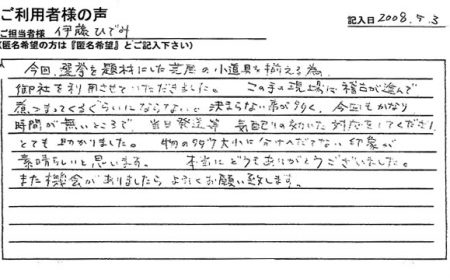 ご利用者様の声
記入日 2008.5.3
ご担当者様 伊藤ひでみ
(匿名希望の方は『匿名希望』とご記入下さい)
今回、選挙を題材にした芝居の小道具を揃える為、
御社を利用させていただきました。 この手の現場は稽古が進んで
煮つまってくるぐらいにならないと決まらない事が多く、今回もかなり
時間が無いところで、当日発送等 気配りの効いた対応をしてくださり
とても助かりました。 物の多少大小に分けへだてない印象が
素晴らしいと思います。 本当にどうもありがとうございました。
また機会がありましたらよろしくお願い致します。